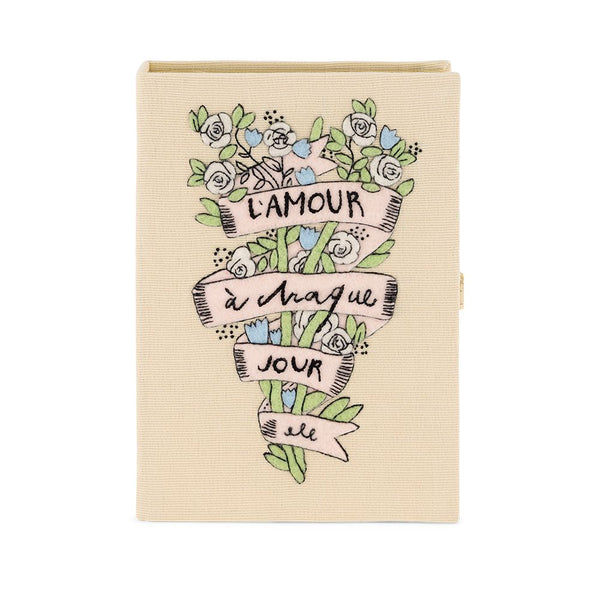 L'AMOUR
à chaque
JOUR
ele